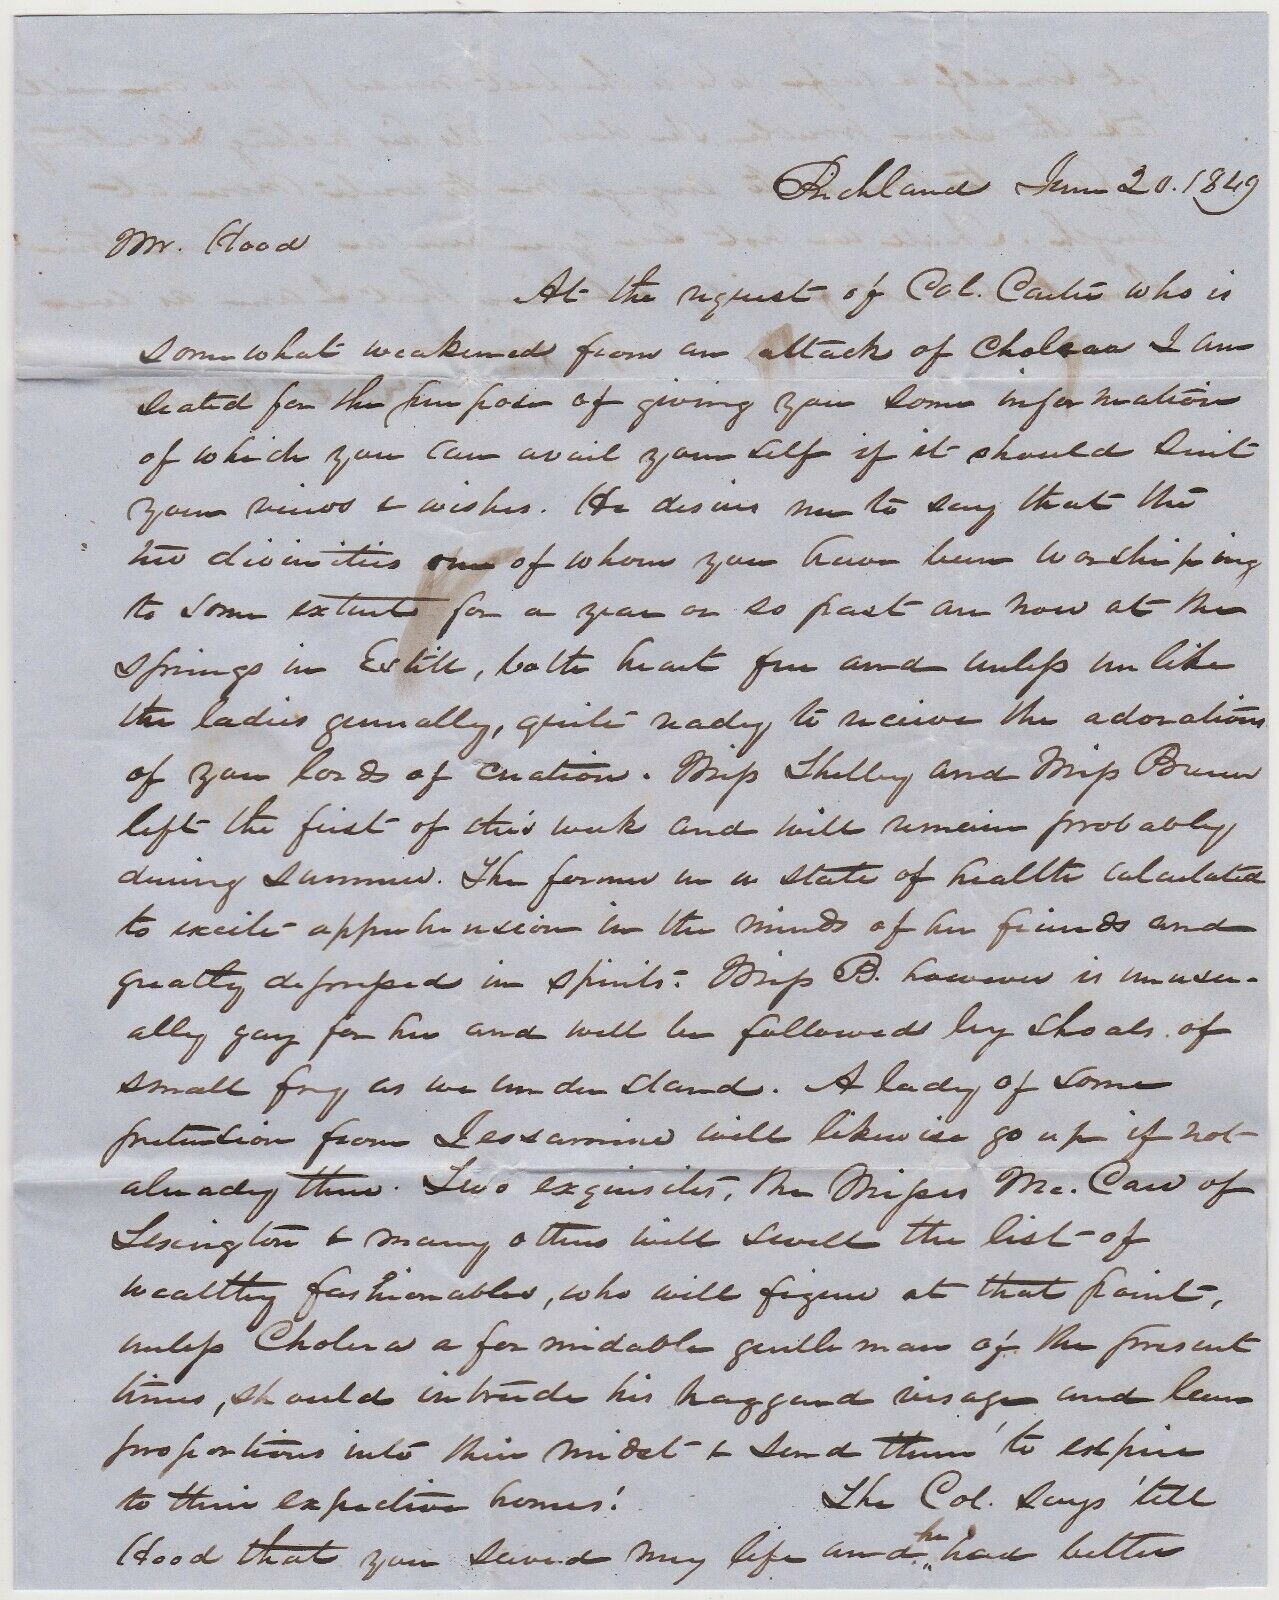 Richland June 20. 1849
Mr. Hood
At the request of Col. Carter who is
somewhat weakened from an attack of Cholera I am
seated for the purpose of giving you some information
of which you can avail your self if it should suit
your views & wishes. He desires me to say that the
two divinities one of whom you have been worshiping
to some extent for a year or so past are now at the
Springs in Estill, both heart free and unless unlike
the ladies generally, quite ready to receive the adorations
of you lords of creation. Miss Shelby and Miss
left the first of this week and will remain probably
during summer. The former in a state of health calculated
to excite apprehension in the minds of her friends and
greatly depressed in spirits. Miss B. however is unusu-
ally gay for her and will be followed by shoals of
small fry as we understand. A lady of some
pretension from Jessamine will likewise go up if not
already there. Two exquisites, the Misses Mc. Caw of
Lexington & many others will swell the list of
wealthy fashionables, who will figure at that point,
unless Cholera a formidable gentleman of the present
times, should intrude his haggard visage and lean
proportions into their midst & send them to expire
to their expective homes! The Col. says 'tell
Hood that you saved my life and he had better